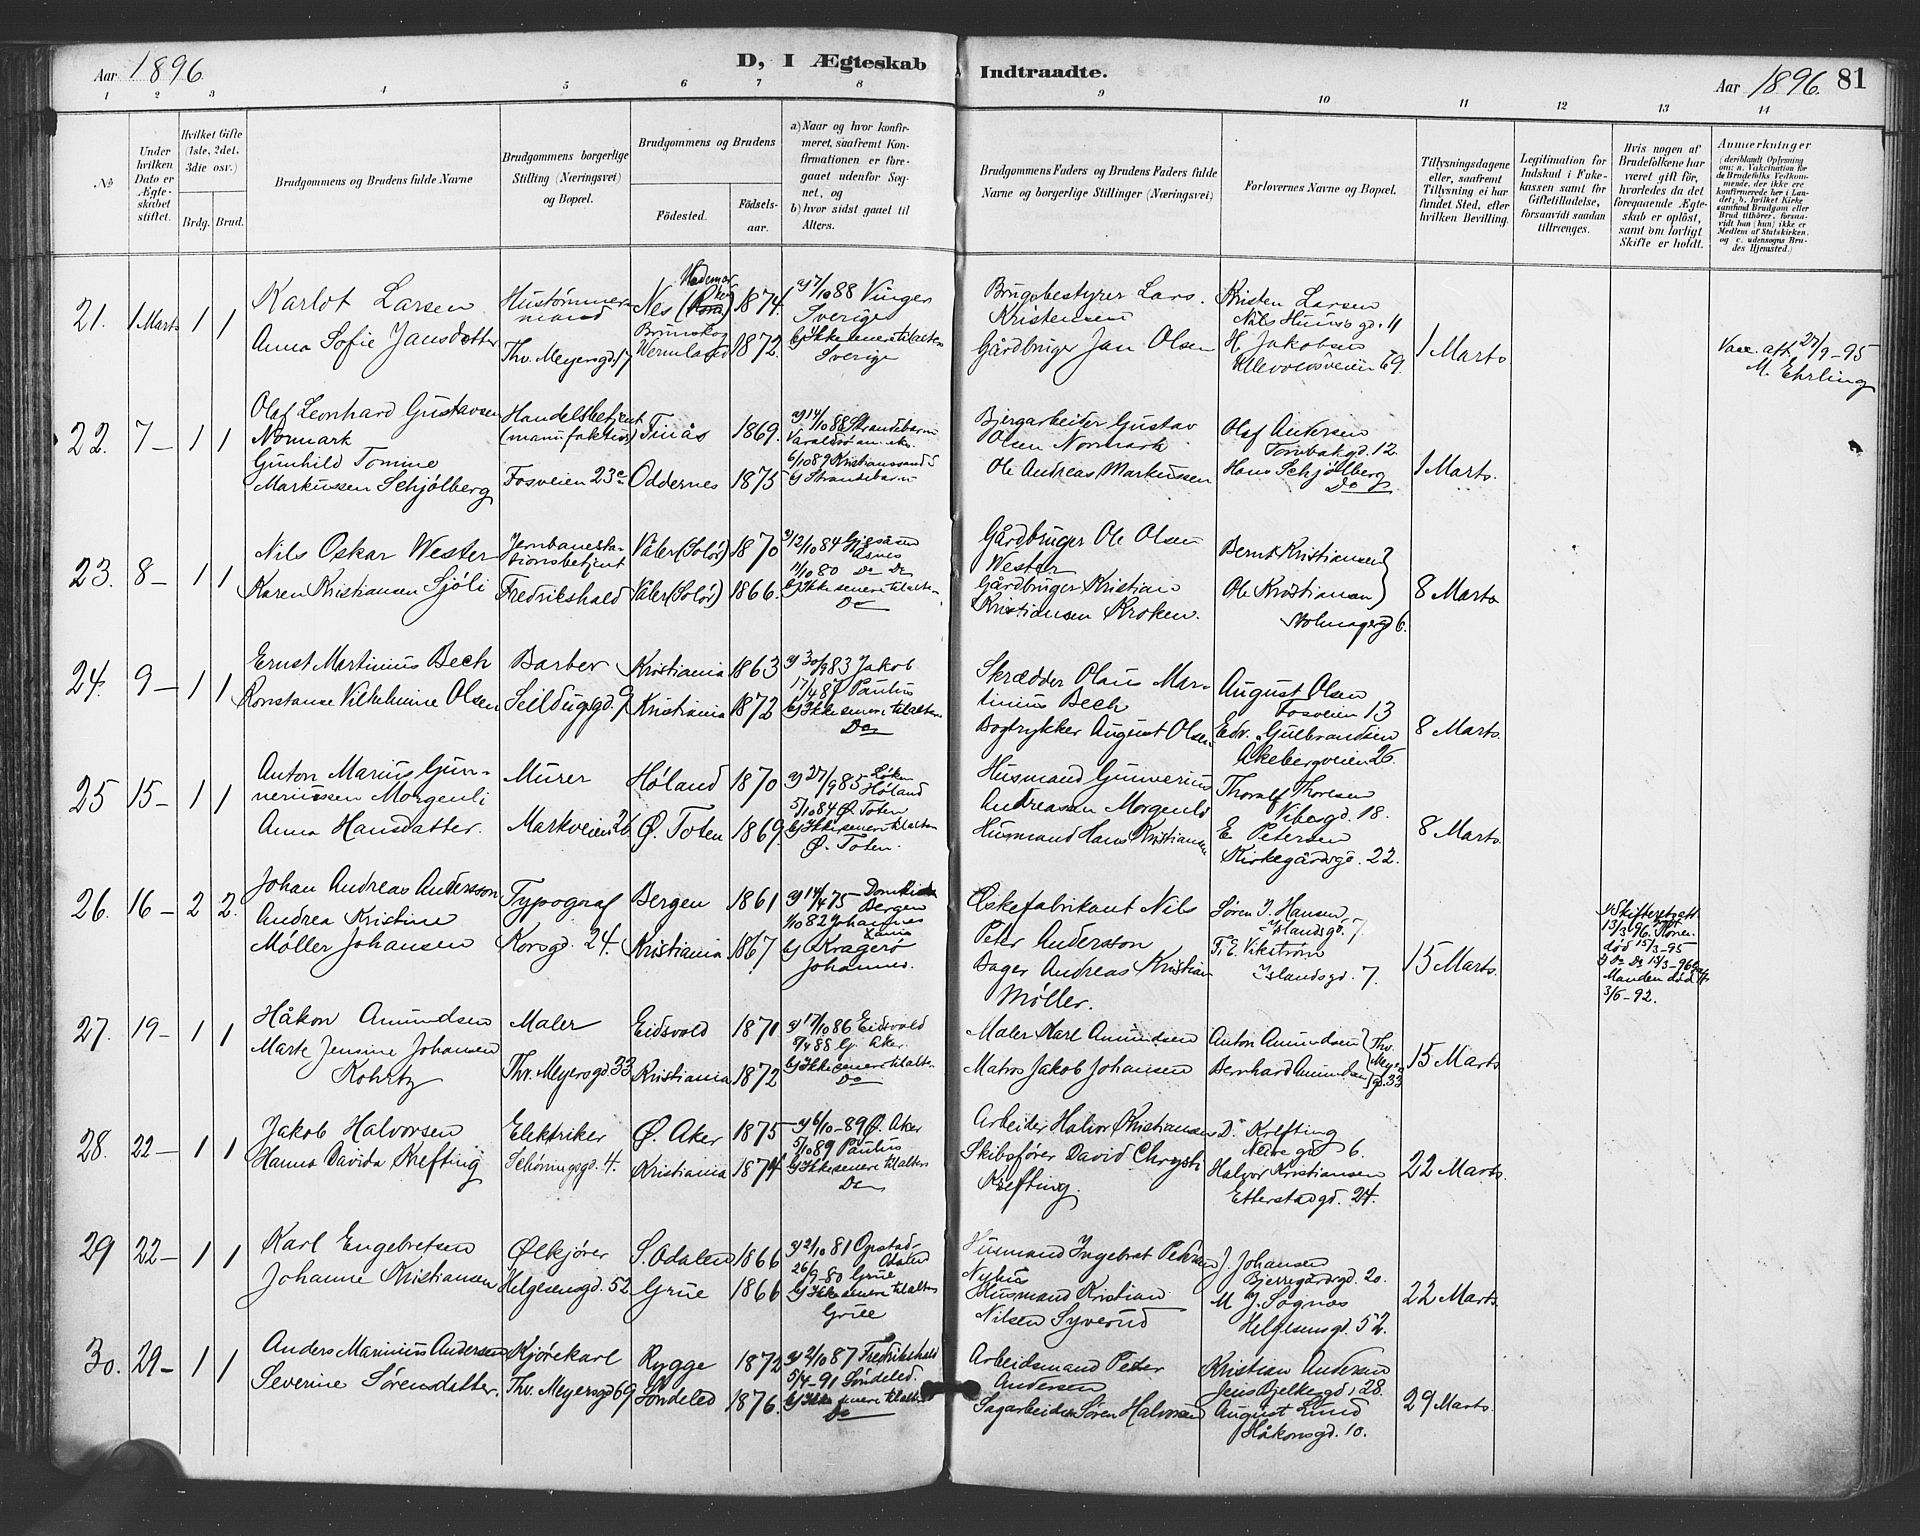 Aar 1896
D, I Ægteskab
Indtraadte.
Aar 1896. 81
1 2 3 4 5 6 7 8 9 10 11 12 13 14
No
Under hvilken Dato er Ægteskabet stiftet.
Hvilket Gifte (1ste, 2det, 3die osv.)
Brdg. Brud.
Brudgommens og Brudens fulde Navne
Brudgommens borgerlige Stilling (Næringsvei) og Bopæl.
Brudgommens og Brudens
Fødested.
Fødselsaar.
a) Naar og hvor konfirmeret, saafremt Konfirmationen er foregaaet udenfor Sognet, og
b) hvor sidst gaaet til Alters.
Brudgommens Faders og Brudens Faders fulde Navne og borgerlige Stillinger (Næringsvei)
Forlovernes Navne og Bopæl.
Tillysningsdagene eller, saafremt Tillysning ei har fundet Sted, efter hvilken Bevilling.
Legitimation for Indskud i Fukekassen samt for Giftetilladelse, forsaavidt saadan tiltrænges.
Hvis nogen af Brudefolkene har været gift før, hvorledes da det foregaaende Ægteskab er opløst, samt om lovligt Skifte er holdt.
Anmerkninger
(deriblandt Oplysning om: a. Vakcination for de Brudefolks Vedkommende, der ikke ere konfirmerede her i Landet; b. hvilket Kirkesamfund Brudgom eller Brud tilhører, forsaavidt han (hun) ikke er Medlem af Statskirken, og c. udensogns Brudes Hjemsted.)
21. 1 Marts 1 1
Karlot Larsen
Anna Sofie Jansdatter
Hustømmermand
Thv. Meyersgd. 17
Nes (Hedemarken) 1874.
Brunskog Wermland 1872.
a) 7/10 88 Vinger
Sverige
b) Ikke senere til alters
Sverige
Brugsbestyrer Lars Kristensen
Gårdbruger Jan Olsen
Kristen Larsen
Nils Huusgd. 11
H. Jakobsen
Ullevoldsveien 69.
1 Marts
Vacc. att. 27/9-95
M. Ehrling
22. 7 — 1 1
Olaf Leonhard Gustavsen
Normark
Gunhild Tomine
Markussen Schjølberg
Handelsbetjent
(manufaktur)
Fosveien 23c
Finås 1869.
Oddernes 1875
a) 14/10 88 Strandebarm
6/10 89 Kristianssand S
b) Strandebarm
Bjergarbeider Gustav
Olsen Normark
Ole Andreas Markussen
Olaf Andersen
Tornbakgd. 12.
Hans Schjølberg
Do
1 Marts.
23. 8 — 1 1
Nils Oskar Wester
Karen Kristiansen Sjöli
Jernbanestationsbetjent
Fredrikshald
Våler (Solør) 1870
Våler (Solør) 1866.
a) 12/10 84 Gjesåsen
Åsnes
11/10 80 Do Do
b) Ikke senere til alters
Do
Gårdbruger Ole Olsen
Wester
Gårdbruger Kristian
Kristiansen Kroken.
Bernt Kristiansen
Ole Kristiansen
Holmagergd 6.
8 Marts
24. 9 — 1 1
Ernst Martinius Bech
Konstanse Vilhelmine Olsen
Barber
Seildugsgd. 9
Kristiania 1863
Kristiania 1872
a) 30/9 83 Jakob
17/4 87 Paulus
b) Ikke senere til alters
Do
Skrædder Olaus Martinius Bech
Bogtrykker August Olsen
August Olsen
Fosveien 13
Edv. Gulbrandsen
Akebergveien 26.
8 Marts.
25 15 — 1 1
Anton Marius Gunneriussen Morgenli
Anna Hansdatter.
Murer
Markveien 26
Høland 1870
Ø. Toten 1869.
a) 27/9 85 Løken
Høland
5/10 84 Ø. Toten
b) Ikke senere til alters
Ø. Toten.
Husmand Gunnerius
Andreasen Morgenli
Husmand Hans Kristiansen
Thoralf Thoresen
Vibesgd. 18.
E Petersen
Kirkegårdsgd. 22.
8 Marts.
26. 16 — 2 2.
Johan Andreas Andersson
Andrea Kristine
Møller Johansen
Typograf
Korsgd. 24.
Bergen 1861
Kristiania 1867
a) 14/4 75 Domkirken
Bergen
1/10 82 Johannes
b) Kragerø
Johannes.
Æskefabrikant Nils
Peter Andersson
Bager Andreas Kristian
Møller.
Søren J. Hansen,
Islandsgd. 7.
F. E. Vikstrøm
Islandsgd. 7.
15 Marts.
Skifteretsatt
13/3-96. Konen
død 15/3-95
Do Do 13/3-96
Manden død
3/5-92.
27. 19 — 1 1
Håkon Amundsen
Marte Jensine Johansen
Rohrtz
Maler
Thv. Meyersgd. 33
Eidsvold 1871
Kristiania 1872
a) 17/10 86 Eidsvold
8/4 88 Gj. Aker
b) Ikke senere til alters
Do
Maler Karl Amundsen
Matros Jakob Johansen
Anton Amundsen
Bernhard Amundsen
Thv. Meyersgd. 33
15 Marts.
28. 22 — 1 1
Jakob Halvorsen
Hanna Davida Krefting
Elektriker
Schøningsgd. 4.
Ø. Aker 1875
Kristiania 1874
a) 6/10-89 Ø. Aker
5/10 89 Paulus
b) Ikke senere til alters
Do
Arbeider Halvor Kristiansen
Skibsfører David Chrysti
Krefting.
D. Krefting
gd 6.
Halvor Kristiansen
Etterstadgd. 24.
22 Marts.
29 22 — 1 1
Karl Engebretsen
Johanne Kristiansen
Ølkjører
Helgesensgd. 52
S. Odalen 1866
Grue 1866
a) 2/10 81 Opstad
Odalen
26/9-80 Grue
b) Ikke senere til alters
Grue
Husmand Ingebrat Pedersen
Nyhus
Husmand Kristian
Nilsen Syverud
J. Johansen
Bjerregårdsgd. 20.
M J. Sognæs
Helgesensgd. 52.
22 Marts.
30. 29 — 1 1
Anders Marinius Andersen
Severine Sørensdatter.
Kjørekarl
Thv. Meyersgd 69
Rygge 1872
Søndeled 1876.
a) 2/10 87 Fredrikshald
5/4-91 Søndeled.
b) Ikke senere til alters
Do
Arbeidsmand Peder
Andersen
Sagarbeider Søren Halvorsen
Kristian Andersen
Jens Bjelkesgd. 28.
August Lund
Håkonsgd. 10.
29 Marts.